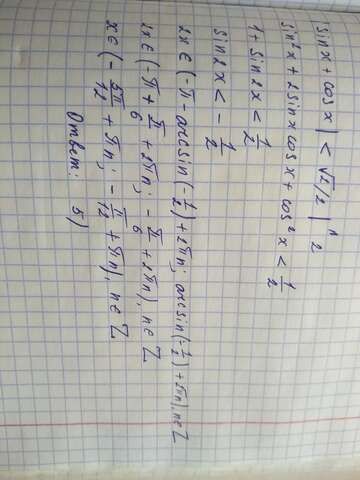 |sinx + cosx| < √2/2 |^2
sin²x + 2sinx cosx + cos²x < 1/2
1 + sin2x < 1/2
sin2x < -1/2
2x ∈ (-π - arcsin(-1/2) + 2πn; arcsin(-1/2) + 2πn), n ∈ Z
2x ∈ (-π + π/6 + 2πn; -π/6 + 2πn), n ∈ Z
x ∈ (-5π/12 + πn; -π/12 + πn), n ∈ Z
Ответ: 5)